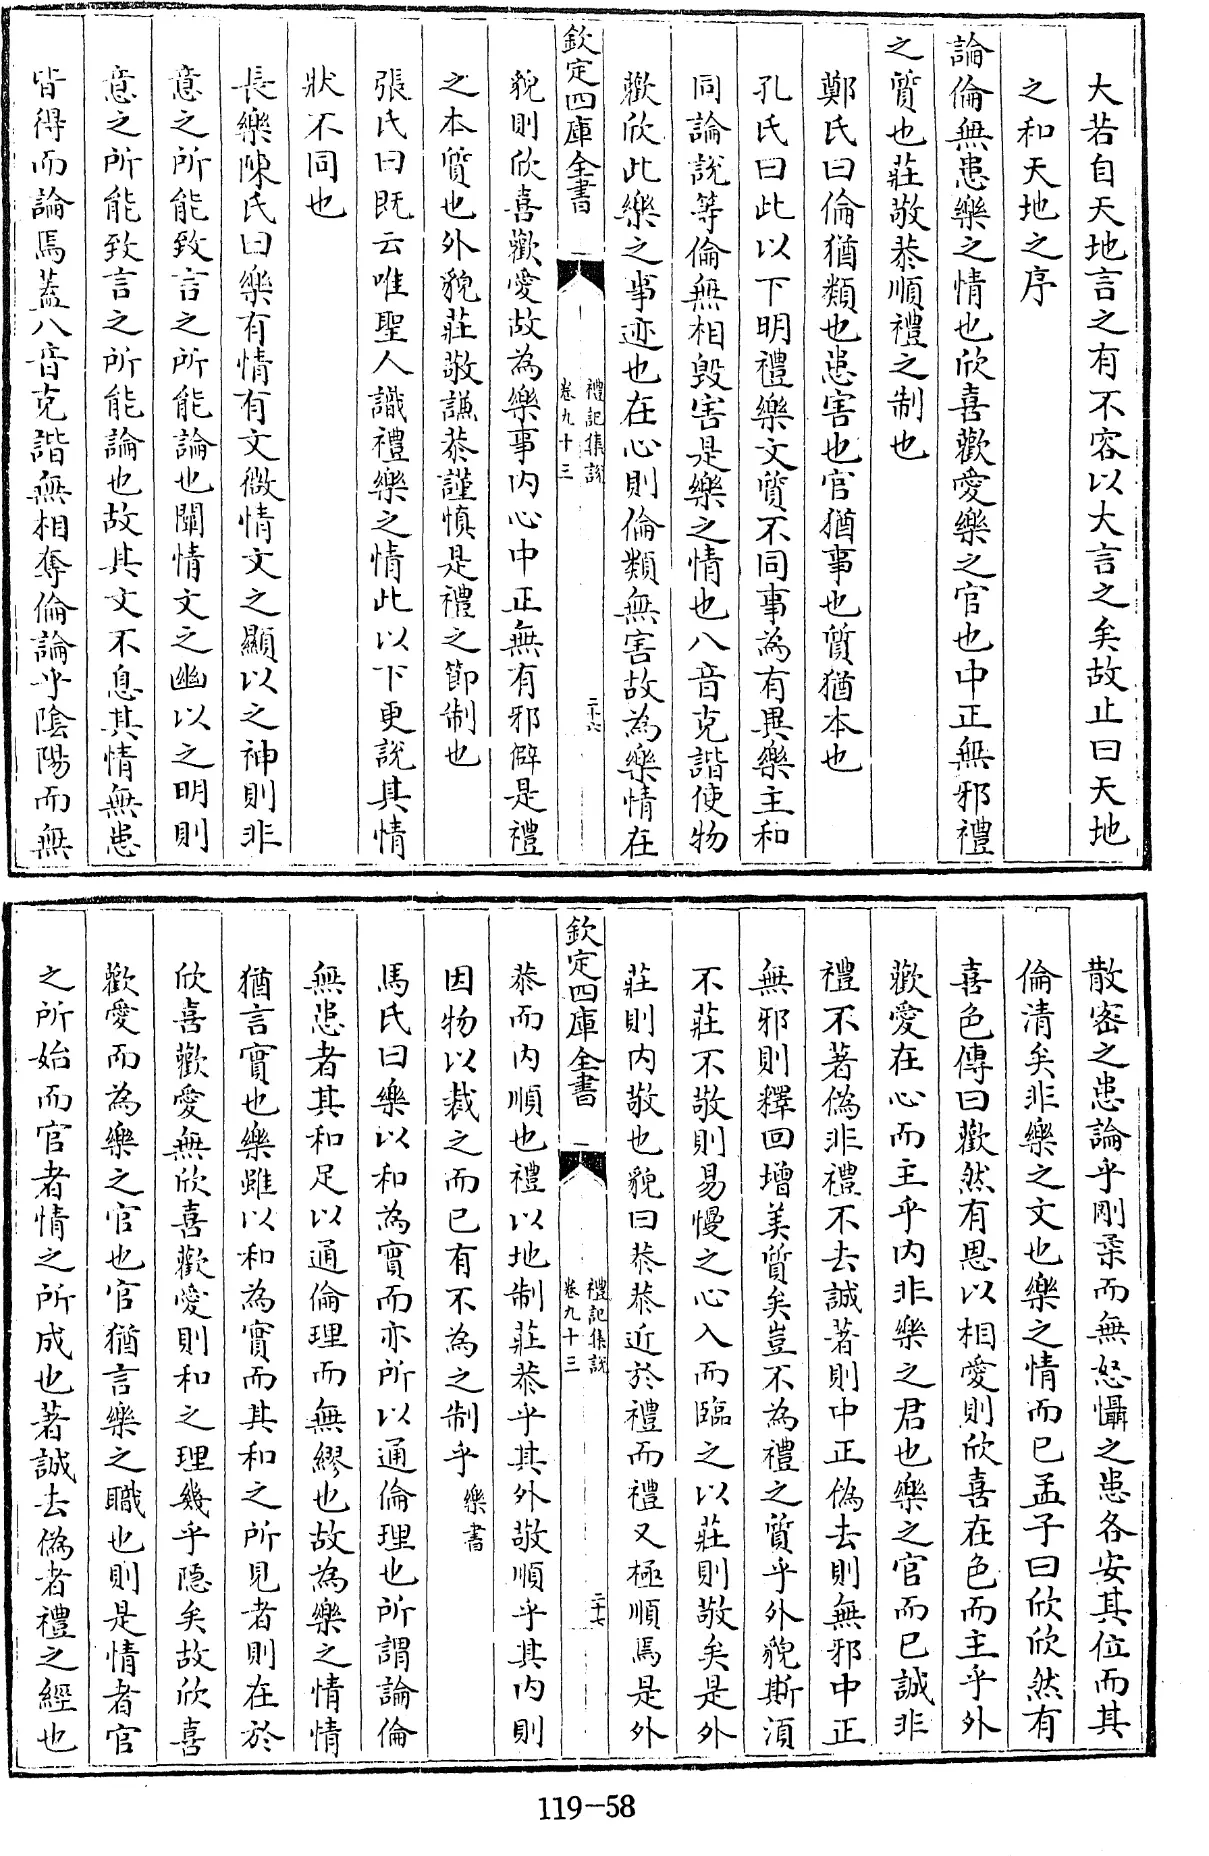 大若自天地言之有不容以大言之矣故止曰天地
之和天地之序
論倫無患樂之情也欣喜歡愛樂之官也中正無邪禮
之質也莊敬恭順禮之制也
鄭氏曰倫猶類也患害也官猶事也質猶本也
孔氏曰此以下明禮樂文質不同事為有異樂主和
同論說等倫無相毀害是樂之情也八音克諧使物
歡欣此樂之事迹也在心則倫類無害故為樂情在
欽定四庫全書
禮記集說
卷九十三
二十六
貌則欣喜歡愛故為樂事内心中正無有邪僻是禮
之本質也外貌莊敬謙恭謹慎是禮之節制也
張氏曰既云唯聖人識禮樂之情此以下更說其情
狀不同也
長樂陳氏曰樂有情有文微情文之顯以之神則非
意之所能致言之所能論也闡情文之幽以之明則
意之所能致言之所能論也故其文不息其情無患
皆得而論焉蓋八音克諧無相奪倫論乎隂陽而無
散密之患論乎剛柔而無怒懾之患各安其位而其
倫清矣非樂之文也樂之情而已孟子曰欣欣然有
喜色傳曰歡然有恩以相愛則欣喜在色而主乎外
歡愛在心而主乎内非樂之君也樂之官而已誠非
禮不著偽非禮不去誠著則中正偽去則無邪中正
無邪則釋回增美質矣豈不為禮之質乎外貌斯須
不莊不敬則易慢之心入而臨之以莊則敬矣是外
莊則内敬也貌曰恭恭近於禮而禮又極順焉是外
欽定四庫全書
禮記集說
卷九十三
二十七
恭而内順也禮以地制莊恭乎其外敬順乎其内則
因物以裁之而已有不為之制乎 樂書
馬氏曰樂以和為實而亦所以通倫理也所謂論倫
無患者其和足以通倫理而無繆也故為樂之情情
猶言實也樂雖以和為實而其和之所見者則在於
欣喜歡愛無欣喜歡愛則和之理幾乎隱矣故欣喜
歡愛而為樂之官也官猶言樂之職也則是情者官
之所始而官者情之所成也著誠去偽者禮之經也
119-58